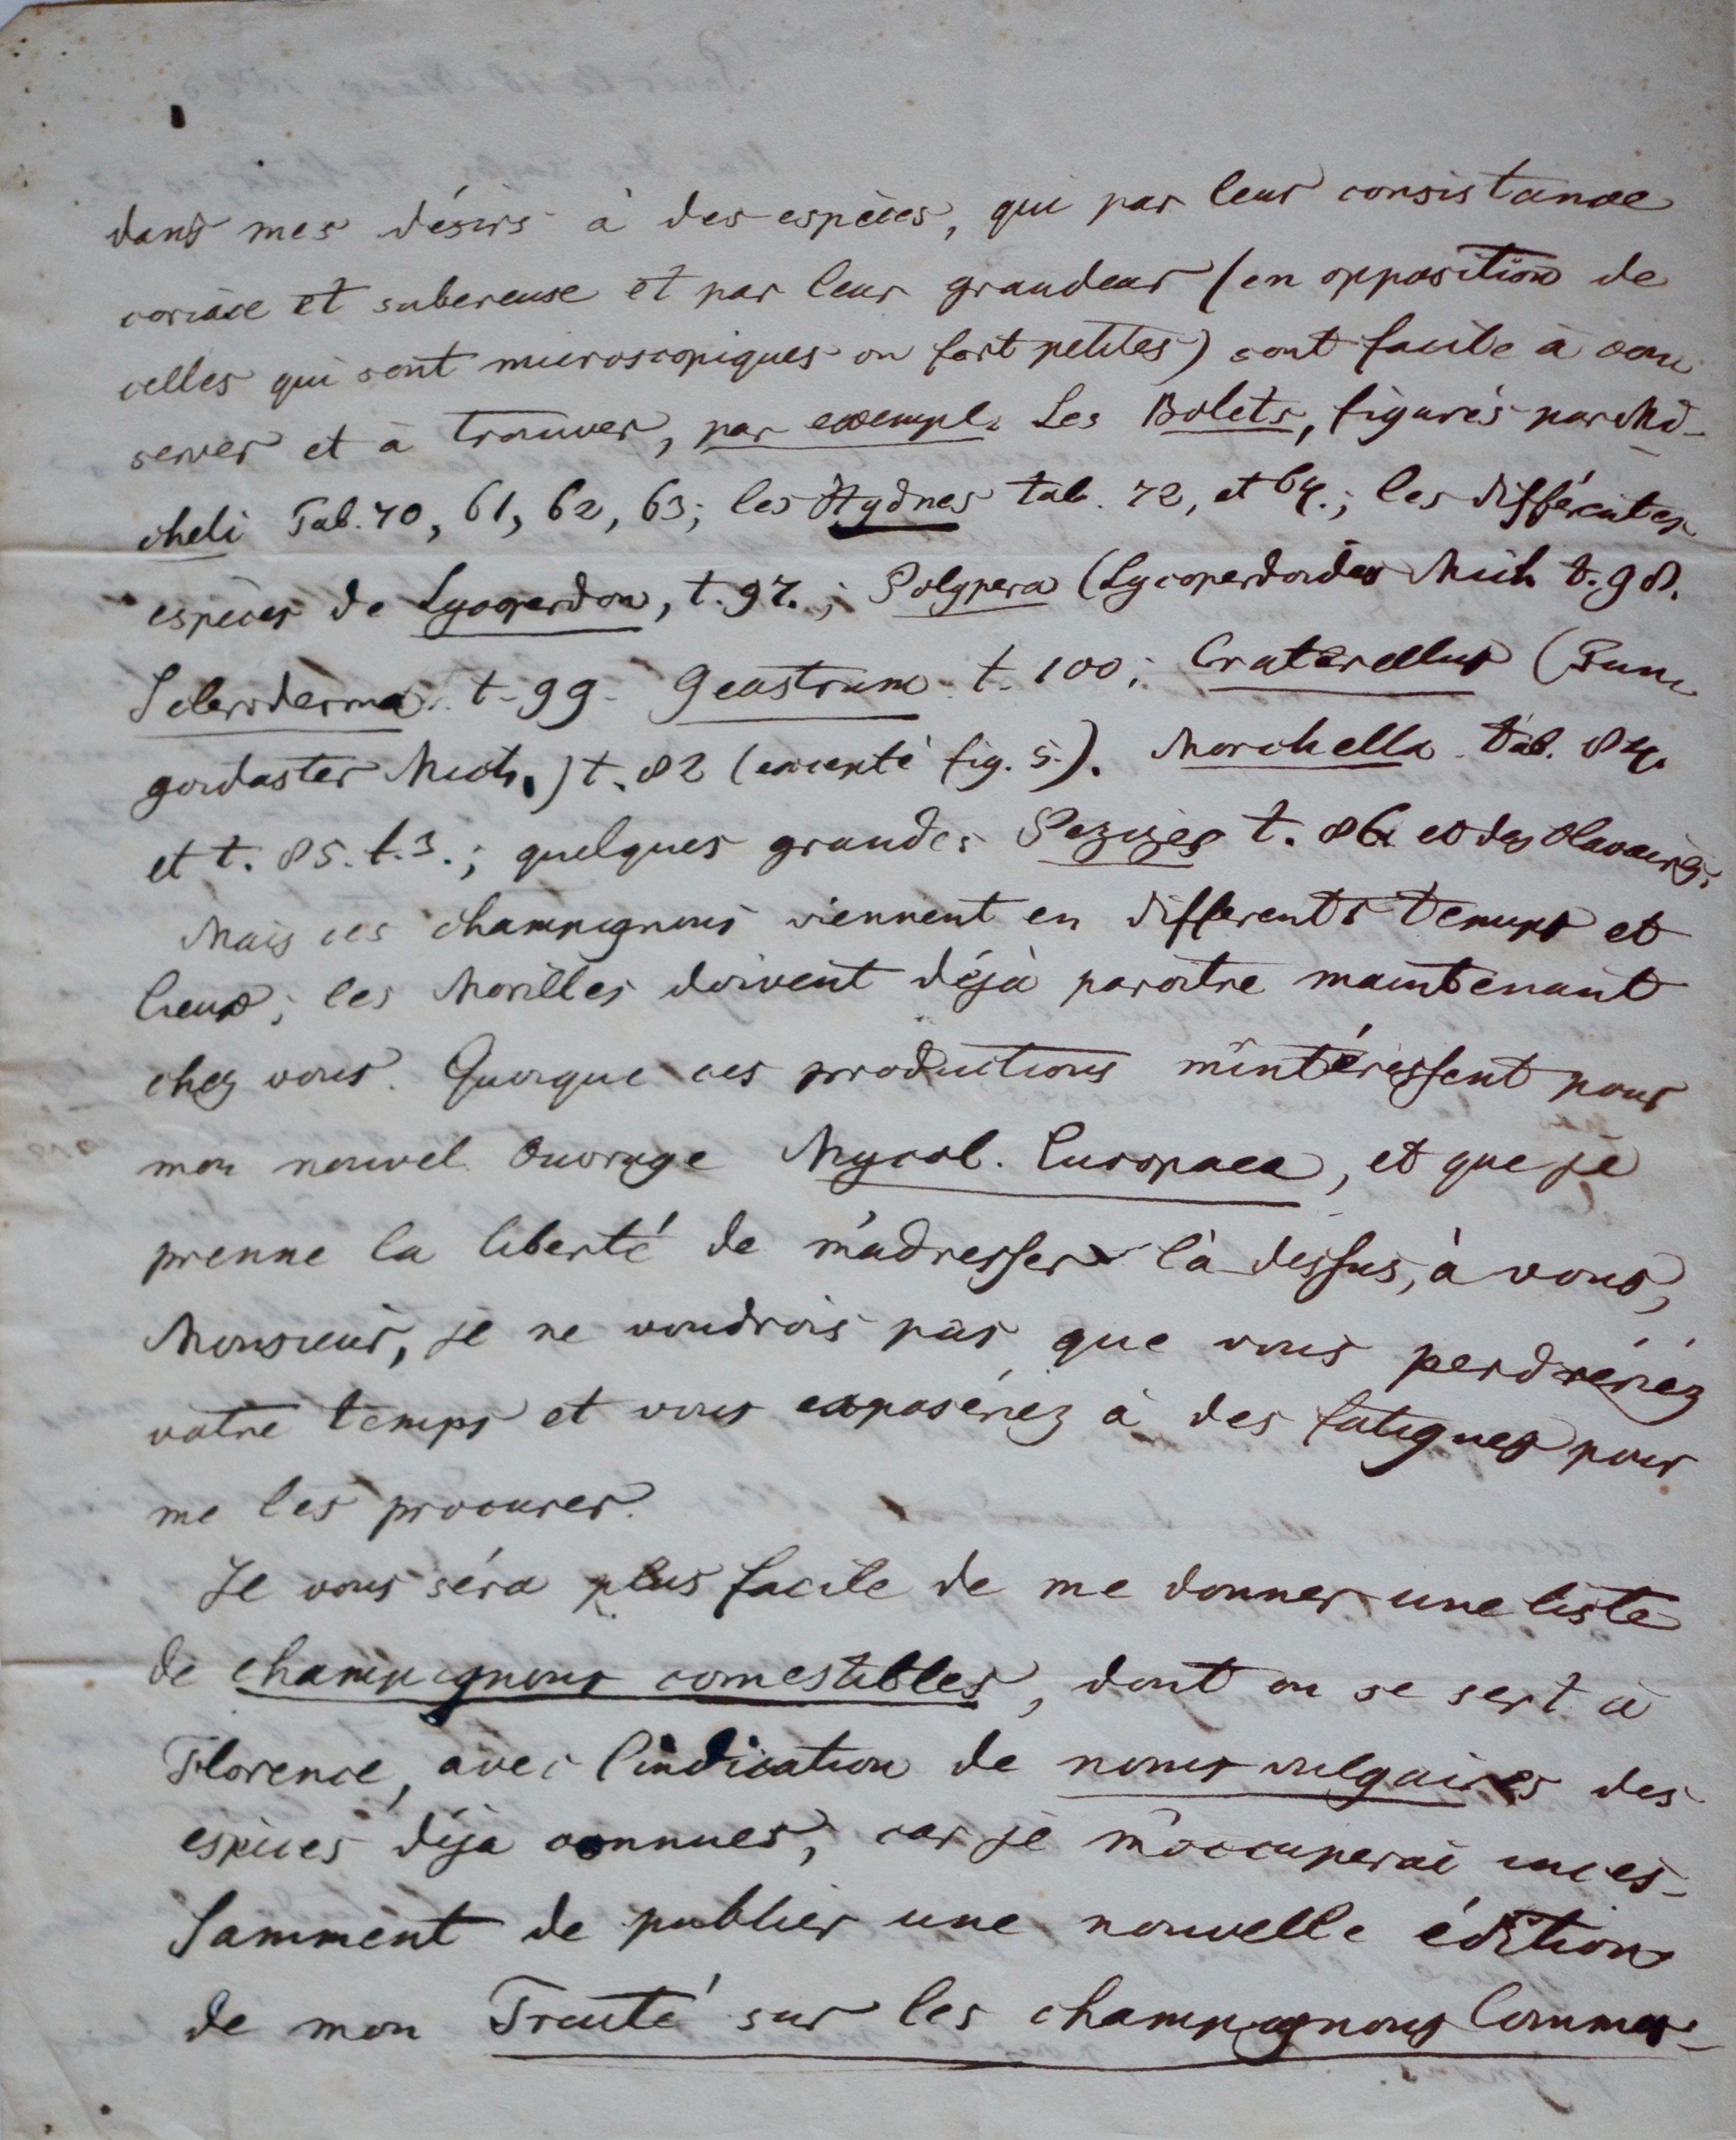 dans mes désirs à des espèces, qui par leur consistance
coriace et subereuse et par leur grandeur (en opposition de
celles qui sont microscopiques ou fort petites) sont facile à con
server et à trouver, par exemple Les Bolets, figurés par Mi-
cheli Tab. 70, 61, 62, 63; les Hydnes tab. 72, et 64.; les différentes
espèces de Lycoperdon, t. 97.; Polypera (Lycoperdoides Mich t. 98.
Scleroderma. t. 99. Geastrum. t. 100; Craterellus (Fun
goidaster Mich.) t. 82 (excepté fig. 5.). Morchella tab. 84.
et t. 85. f. 3.; quelques grandes Pezizes t. 86 et des Clavaires.
Mais ces champignons viennent en differents temps et
lieux; les Morilles doivent déjà paroitre maintenant
chez vous. Quoique ces productions m'intéressent pour
mon nouvel Ouvrage Mycol. Europaea, et que je
prenne la liberté de m'adresser là dessus, à vous,
Monsieur, je ne voudrois pas que vous perdrériez
votre temps et vous exposériez à des fatigues pour
me les procurer.
Il vous séra plus facile de me donner une liste
de champignons comestibles, dont on se sert à
Florence, avec l'indication de noms vulgaires des
espèces déja connues, car je m'occuperai inces-
samment de publier une nouvelle édition
de mon Traité sur les champignons Comes-